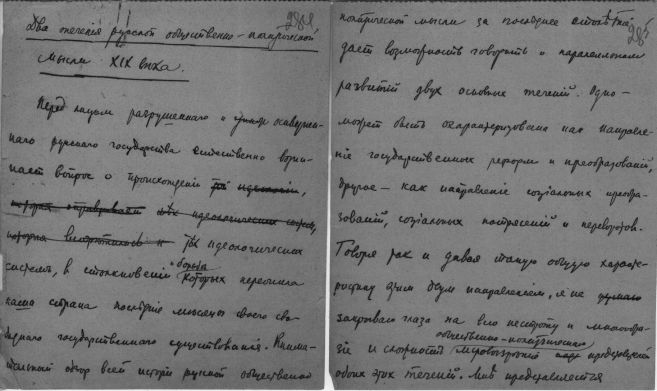 Два теченія русской общественно-политической
мысли XIX вѣка.
Перед лицом разрушеннаго и осквернен-
наго русскаго государства естественно возни-
кает вопрос о происхожденіи той идеологіи,
которая
тѣх идеологических
систем, в столкновеніи и борьбѣ которых пережила
наша страна послѣдніе мѣсяцы своего сво-
боднаго государственнаго существованія. Внима-
тельный обзор всей исторіи русской общественно
284
политической мысли за послѣднее столѣтіе
дает возможность говорить о параллельном
развитіи двух основных теченій. Одно –
может быть охарактеризовано как направле-
ніе государственных реформ и преобразованій,
другое – как направленіе соціальных преобра-
зованій, соціальных потрясеній и переворотов.
Говоря так и давая такую общую характе-
ристику этим двум направленіям, я не
закрываю глаза на всю пестроту и многообра-
общественно-политических
зіе и сложность міровоззрѣній представителей
обоих этих теченій. Мнѣ представляется